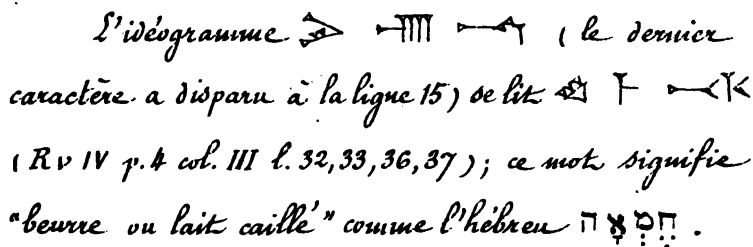 L'idéogramme (le dernier
caractère a disparu à la ligne 15) se lit
(Rv IV p. 4 col. III l. 32, 33, 36, 37); ce mot signifie
"beurre ou lait caillé" comme l'hébreu חֶמְאָה.